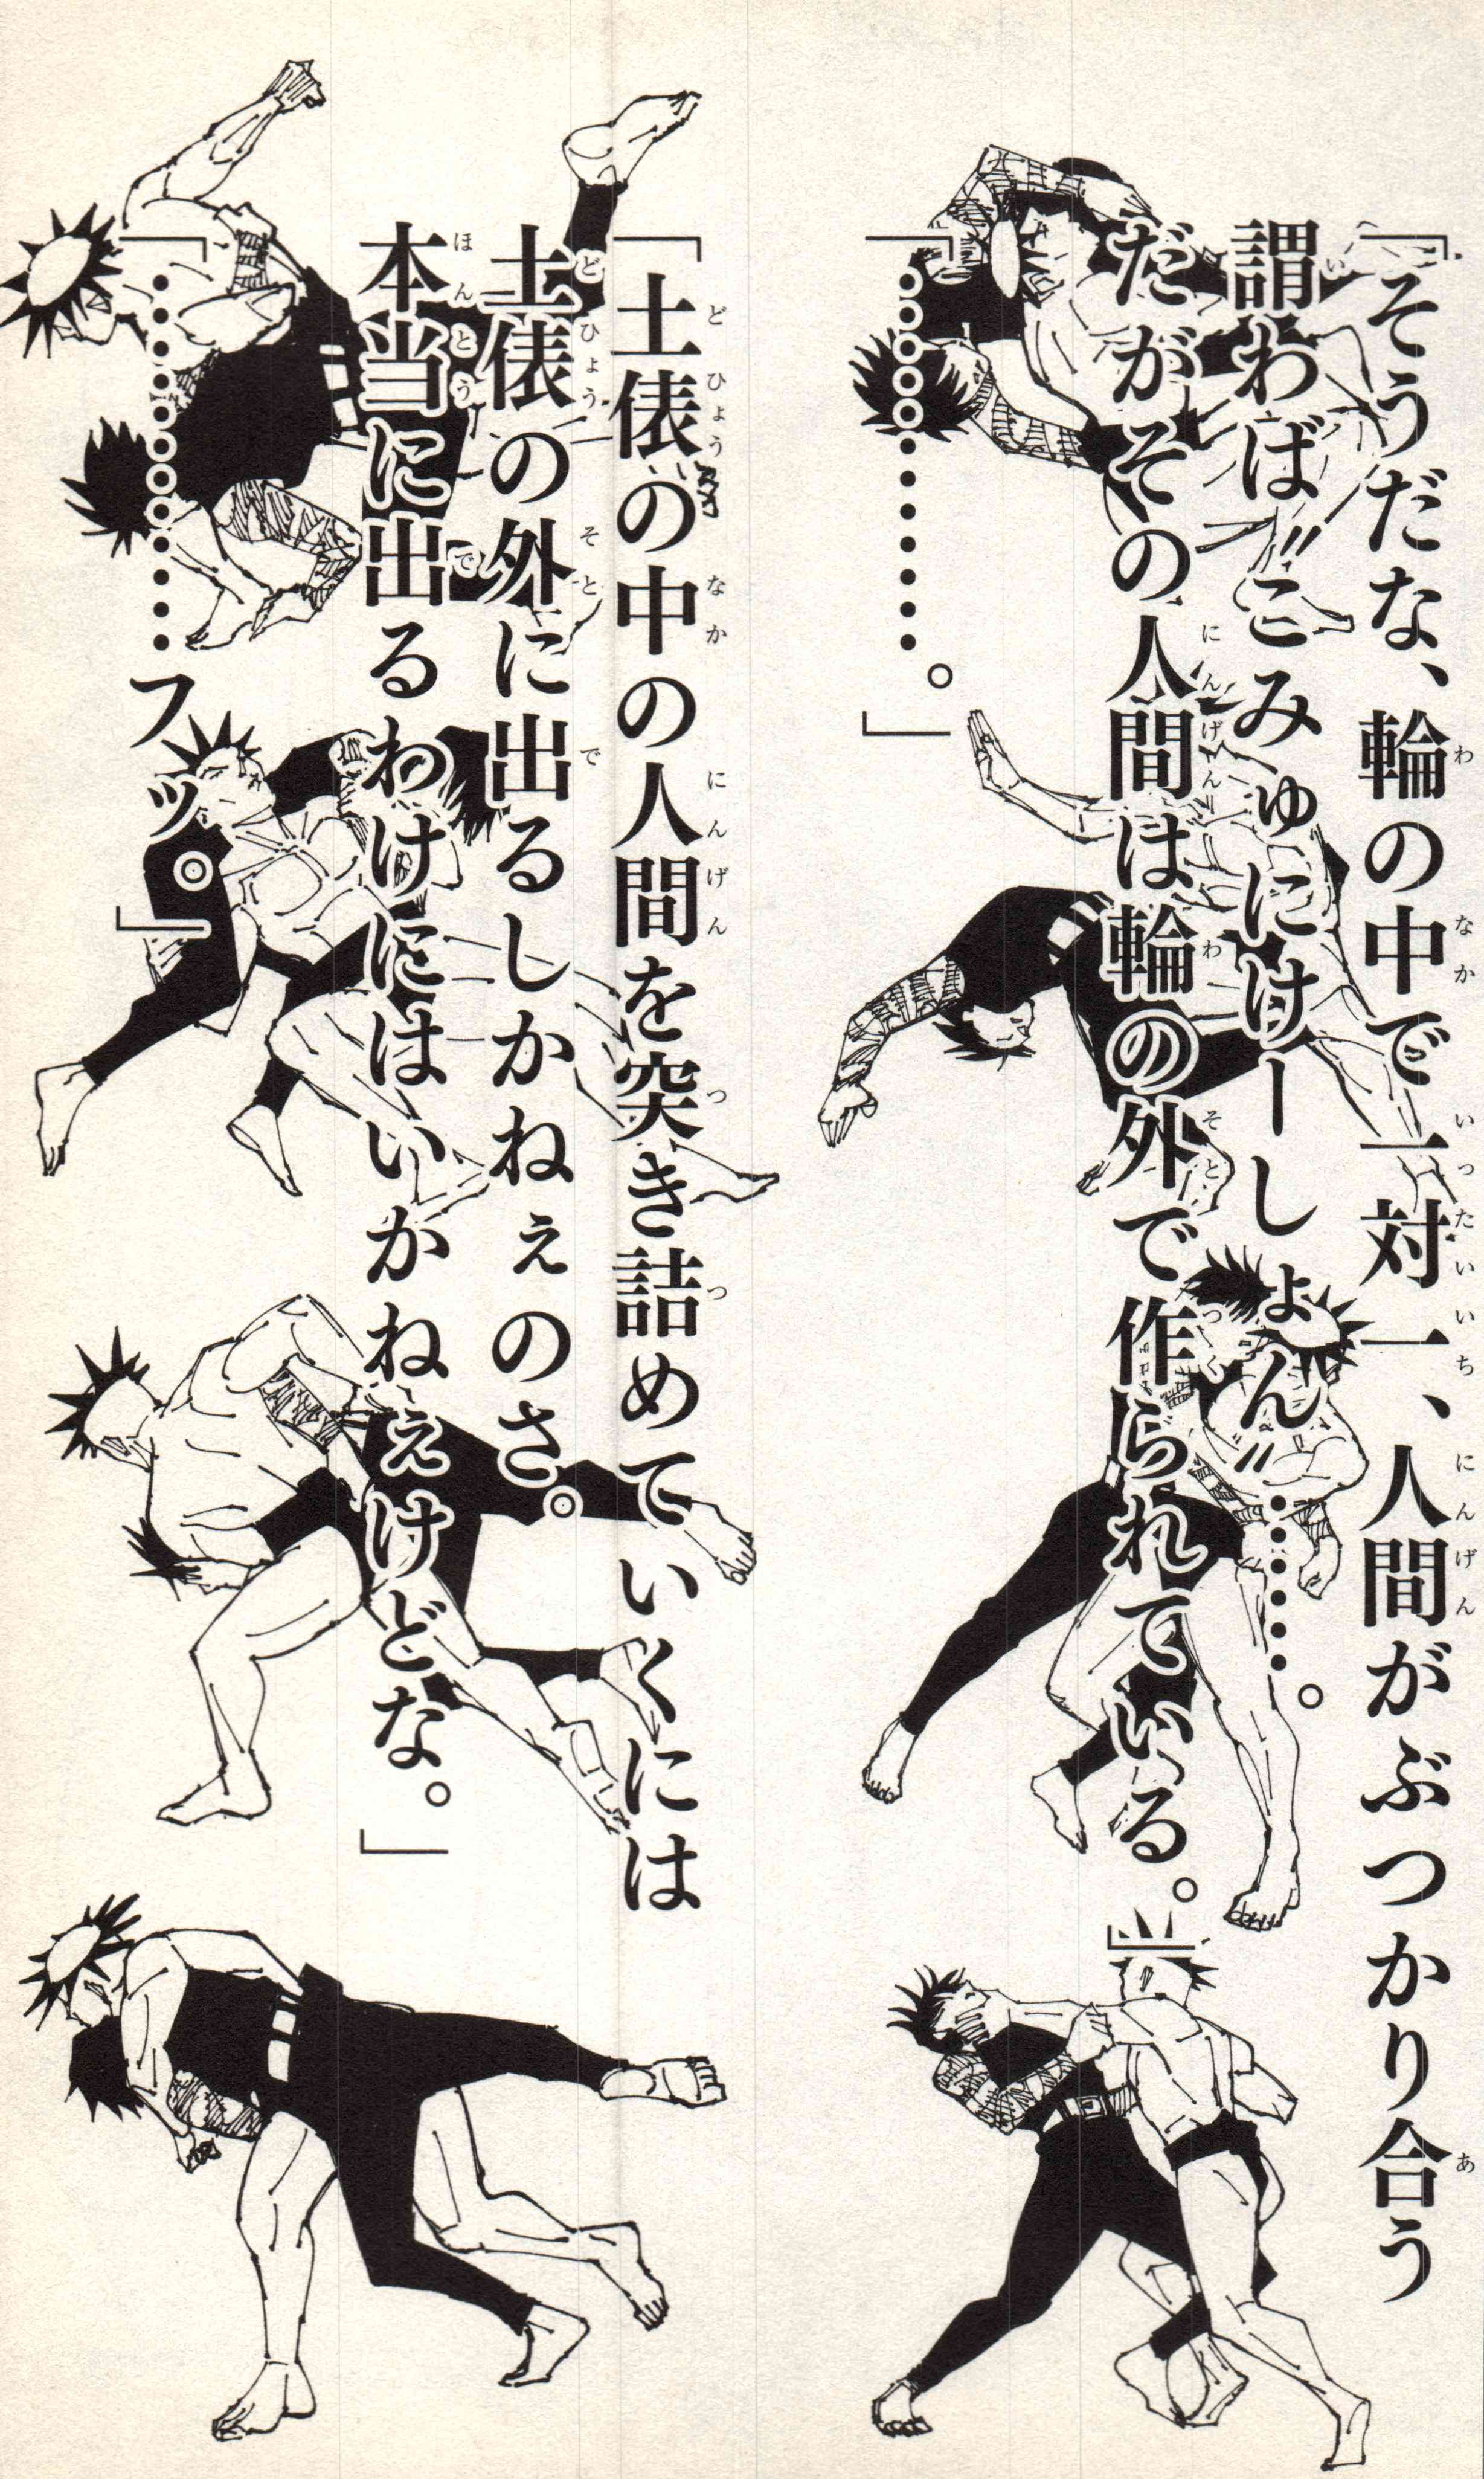 「そうだな、輪の中で一対一、人間がぶつかり合う
謂わば〝こみゅにけーしょん〟……。
だがその人間は輪の外で作られている。」
「…………。」
「土俵の中の人間を突き詰めていくには
土俵の外に出るしかねぇのさ。
本当に出るわけにはいかねぇけどな。」
「…………フッ。」